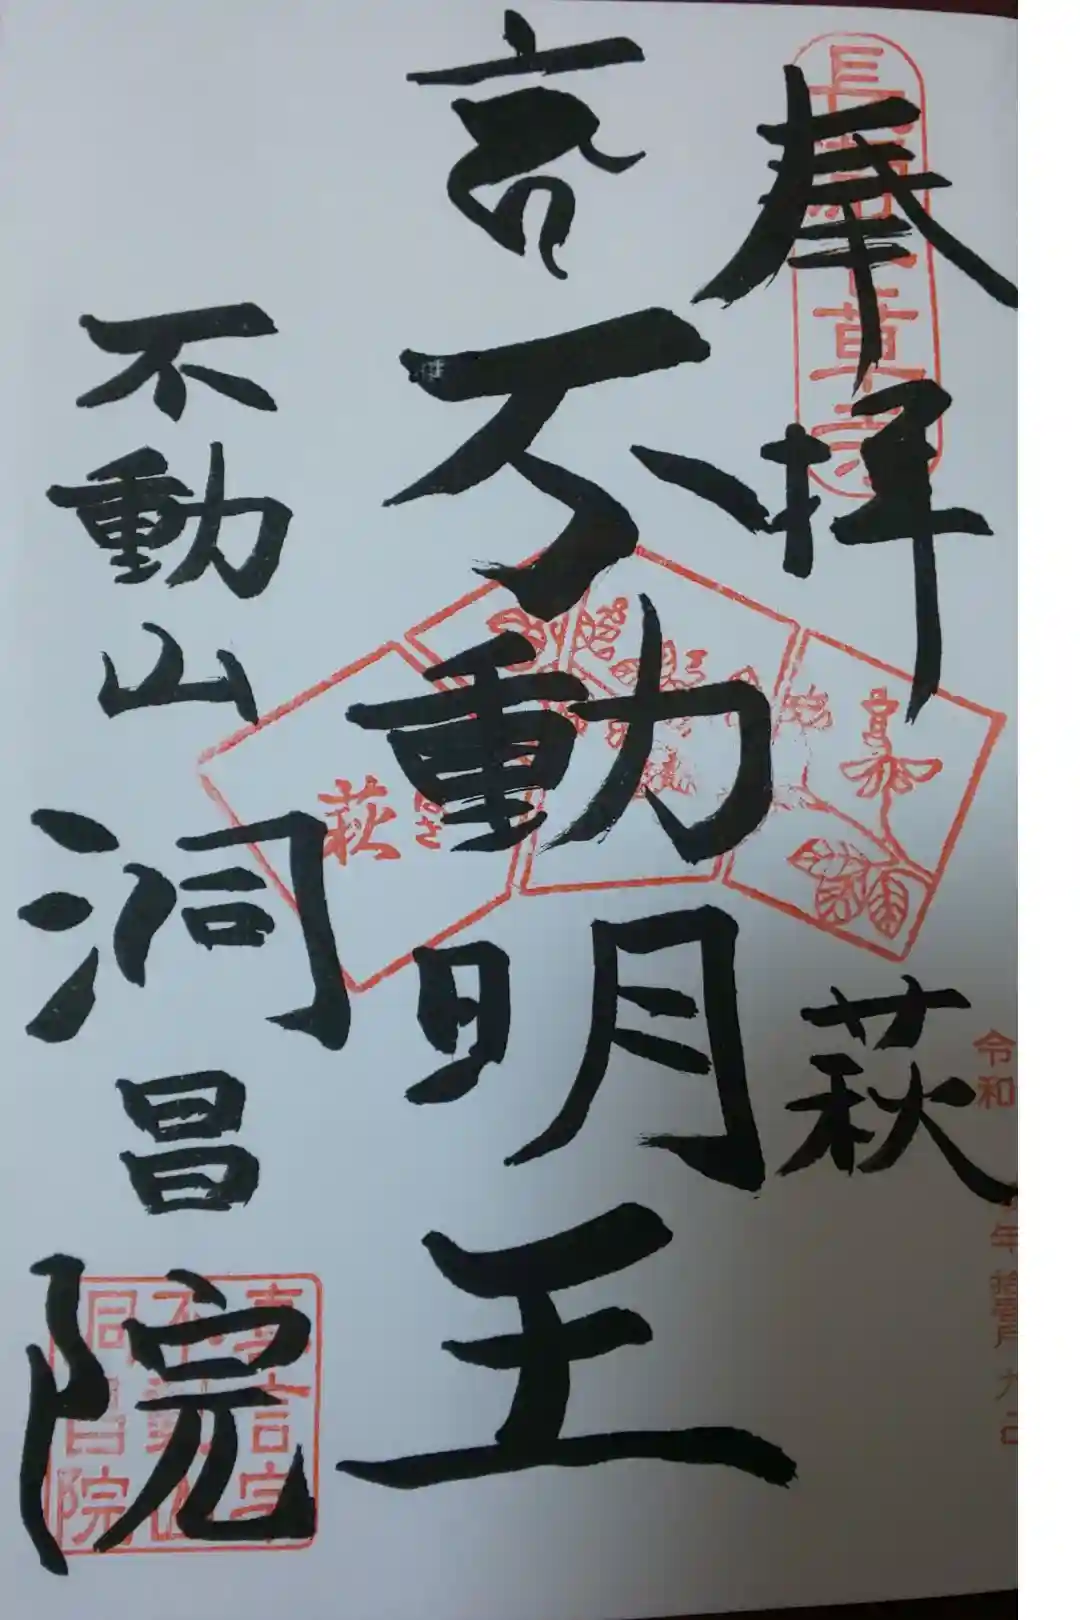 奉拝
萩
不動明王
不動山
洞昌院
萩
はぎ
令和
年 拾壱月 九日
真言宗
不動山
洞昌院